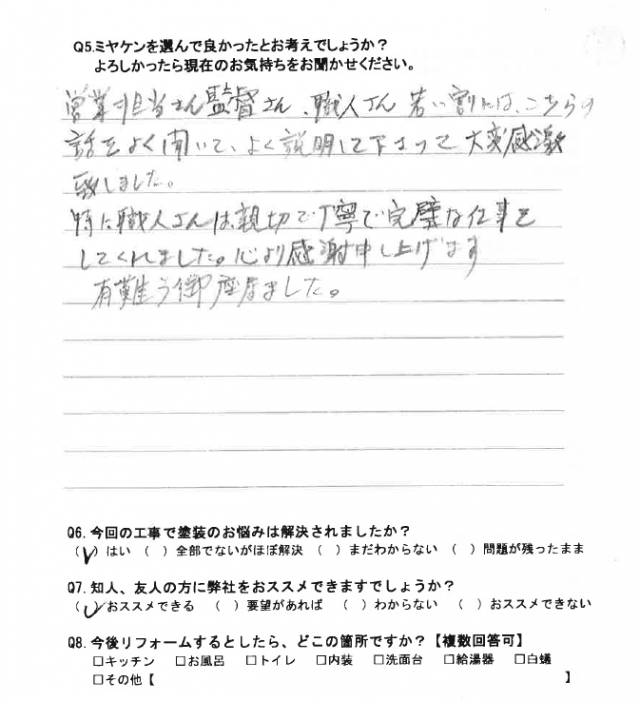 Q5.ミヤケンを選んで良かったとお考えでしょうか？
よろしかったら現在のお気持ちをお聞かせください。
営業担当さん監督さん、職人さん 若い割には、こちらの
話をよく聞いて、よく説明して下さって 大変感激
致しました。
特に職人さんは親切で丁寧で完璧な仕事を
してくれました。心より感謝申し上げます
有難う御座いました。
Q6. 今回の工事で塗装のお悩みは解決されましたか？
（✓）はい （ ）全部でないがほぼ解決 （ ）まだわからない （ ）問題が残ったまま
Q7. 知人、友人の方に弊社をおススメできますでしょうか？
（✓）おススメできる （ ）要望があれば （ ）わからない （ ）おススメできない
Q8. 今後リフォームするとしたら、どこの箇所ですか？【複数回答可】
□キッチン □お風呂 □トイレ □内装 □洗面台 □給湯器 □白蟻
□その他【 】